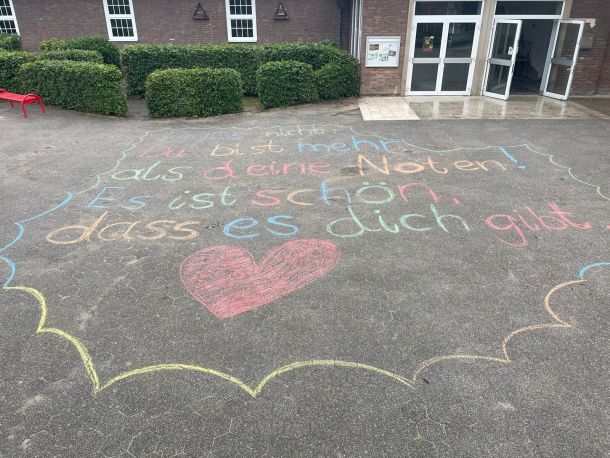 nicht:
Du bist mehr
als deine Noten!
Es ist schön,
dass es dich gibt.